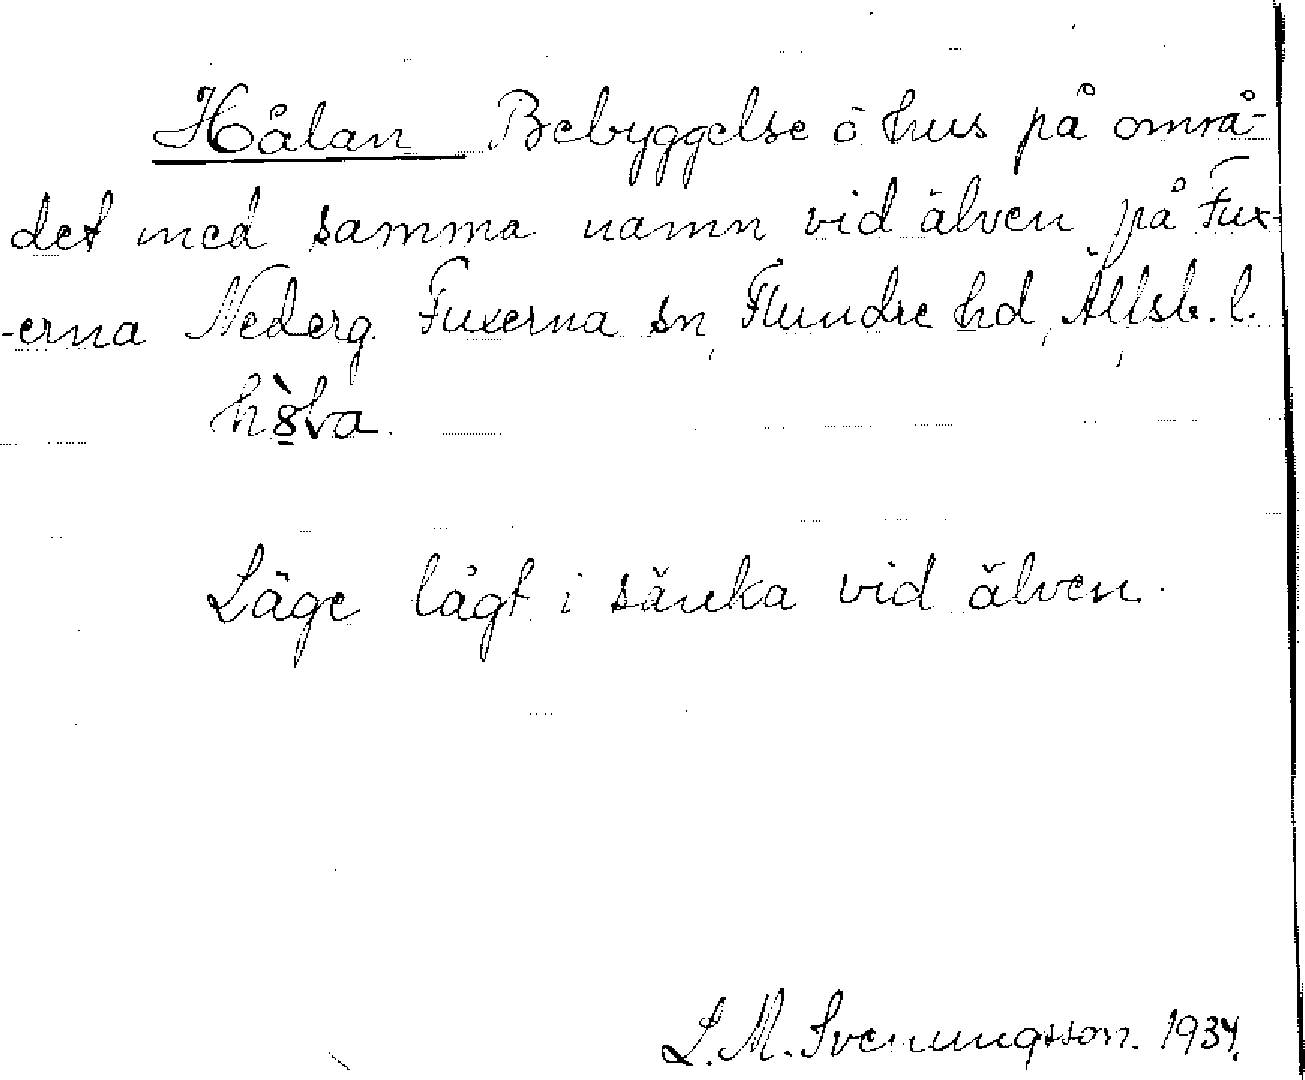 Hålan Bebyggelse o hus på områ-
det med samma namn vid älven på Fux-
-erna Nederg. Fuxerna sn, Flundre hd, Älfsb. l.
Läge lågt i sänka vid älven.
L. M. Svenungsson. 1934.